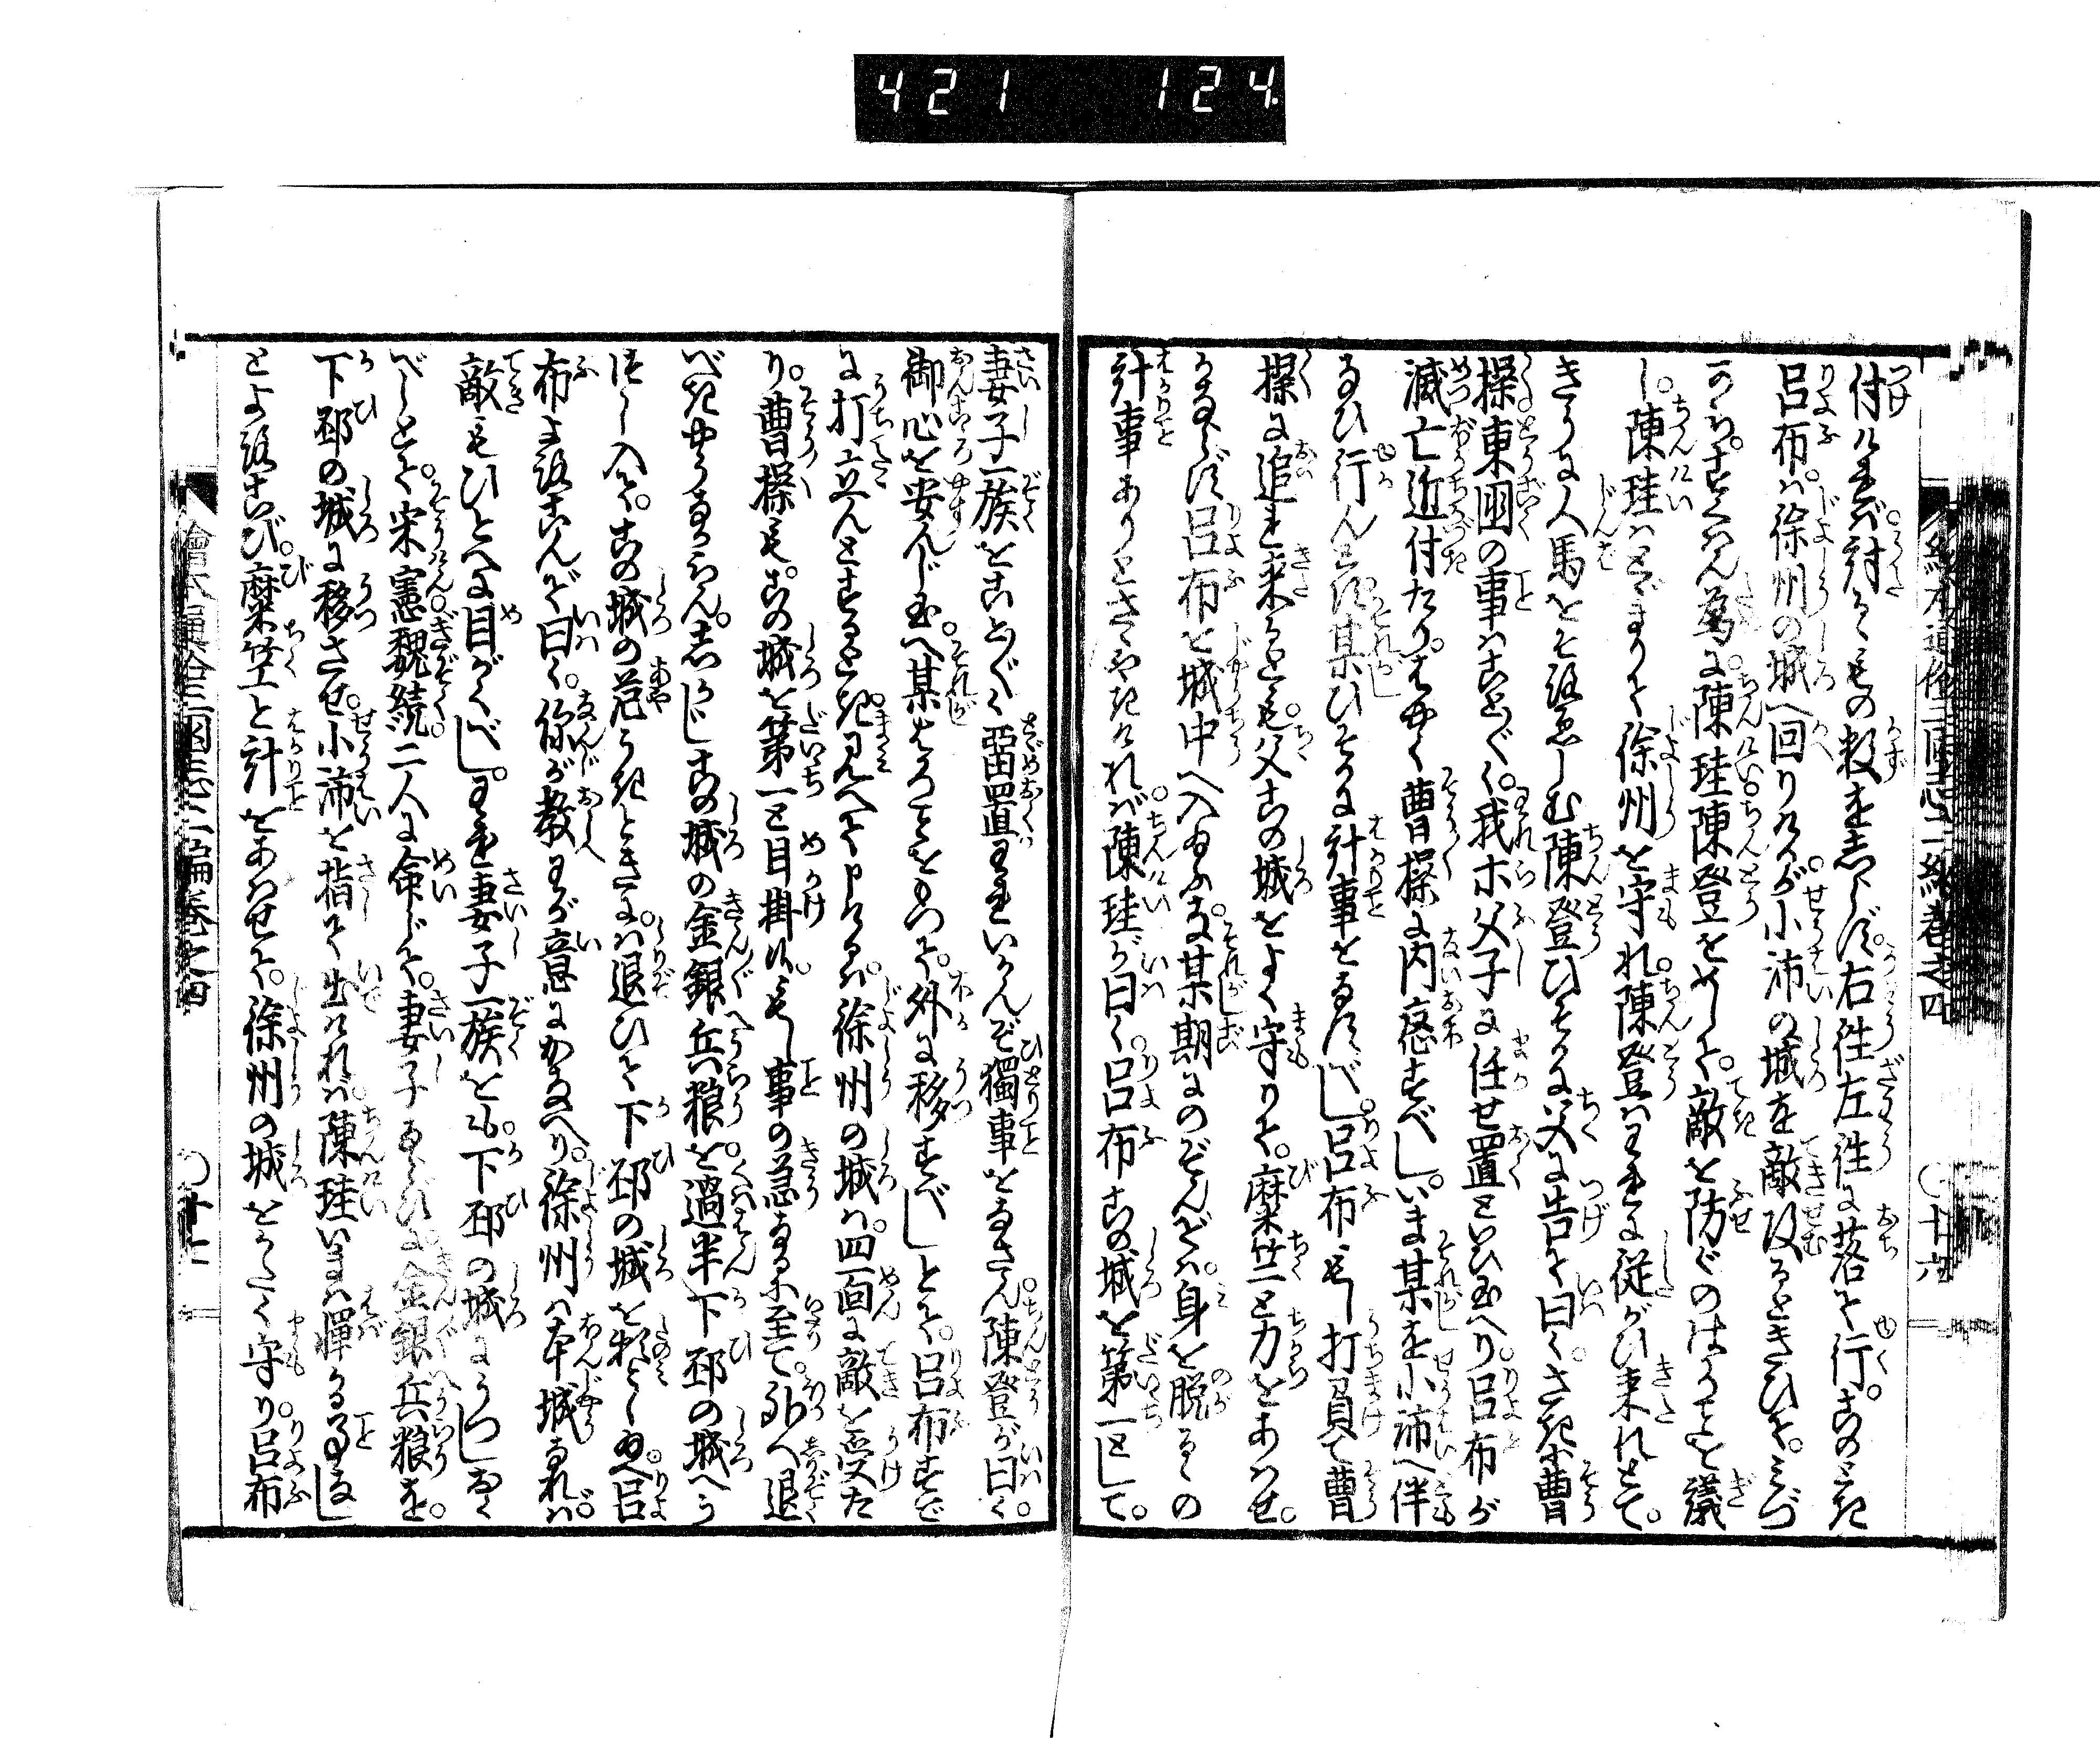 421 124
絵本通俗三國志二編巻之四 ○十六
付けれバ。討るゝもの数を志らず。右徃左徃に落て行。この三き
呂布ハ。徐州の城へ回りけるが。小沛の城を敵攻るときひて。ミづ
から。すくはん為に。陳珪陳登をめして。敵を防ぐのはかりことを議
し。陳珪ハとゞまりて徐州を守れ。陳登ハわれに従がひ来れとて。
きうに人馬をそろへしむ陳登ひそかに父に告て曰くさきに曹
操東国の事ハことごとく。我等父子に任せ置といひ玉へり呂布が
滅亡近付たり。はやく曹操に内応すべし。いま某を小沛へ伴
なひ行んとす某ひそかに計事をなすべし。呂布もし打負て曹
操に追れ来るとも。父この城をよく守りて。糜竺と力をあハせ。
かならず呂布を城中へ入玉ふな。某期にのぞんでハ。身を脱るゝの
計事ありとさゝやきけれバ。陳珪が曰く。呂布この城を第一として。
妻子一族をことごとく畱置れいかんぞ獨事をなさん。陳登が曰く。
御心を安んじ玉へ。某はかりことをもつて。外に移すべしとて。呂布すで
に打立んとするとき。まミへて申けるハ。徐州の城ハ。四面に敵を受た
り。曹操も。この城を第一と目掛け。もし事の急なるに至て。外へ退
べきやうなからん。志かじこの城の金銀兵粮を。過半下邳の城へう
つし入て。この城の危うきときにハ。退ひて下邳の城を頼とし玉へ。呂
布よろこんで曰く。你が教わが意にかなへり。徐州ハ本城なれバ。
敵もひとへに目がくべし。われ妻子一族をも。下邳の城にうつしおく
べしとて。宋憲魏続二人に命じて。妻子ならびに金銀兵粮を。
下邳の城に移させ。小沛を指て出けれバ。陳珪いまハ憚かる事なし
とよろこび。糜竺と計をあハせて。徐州の城をかたく守り。呂布
繪本通俗三國志二編巻之四 ○十七